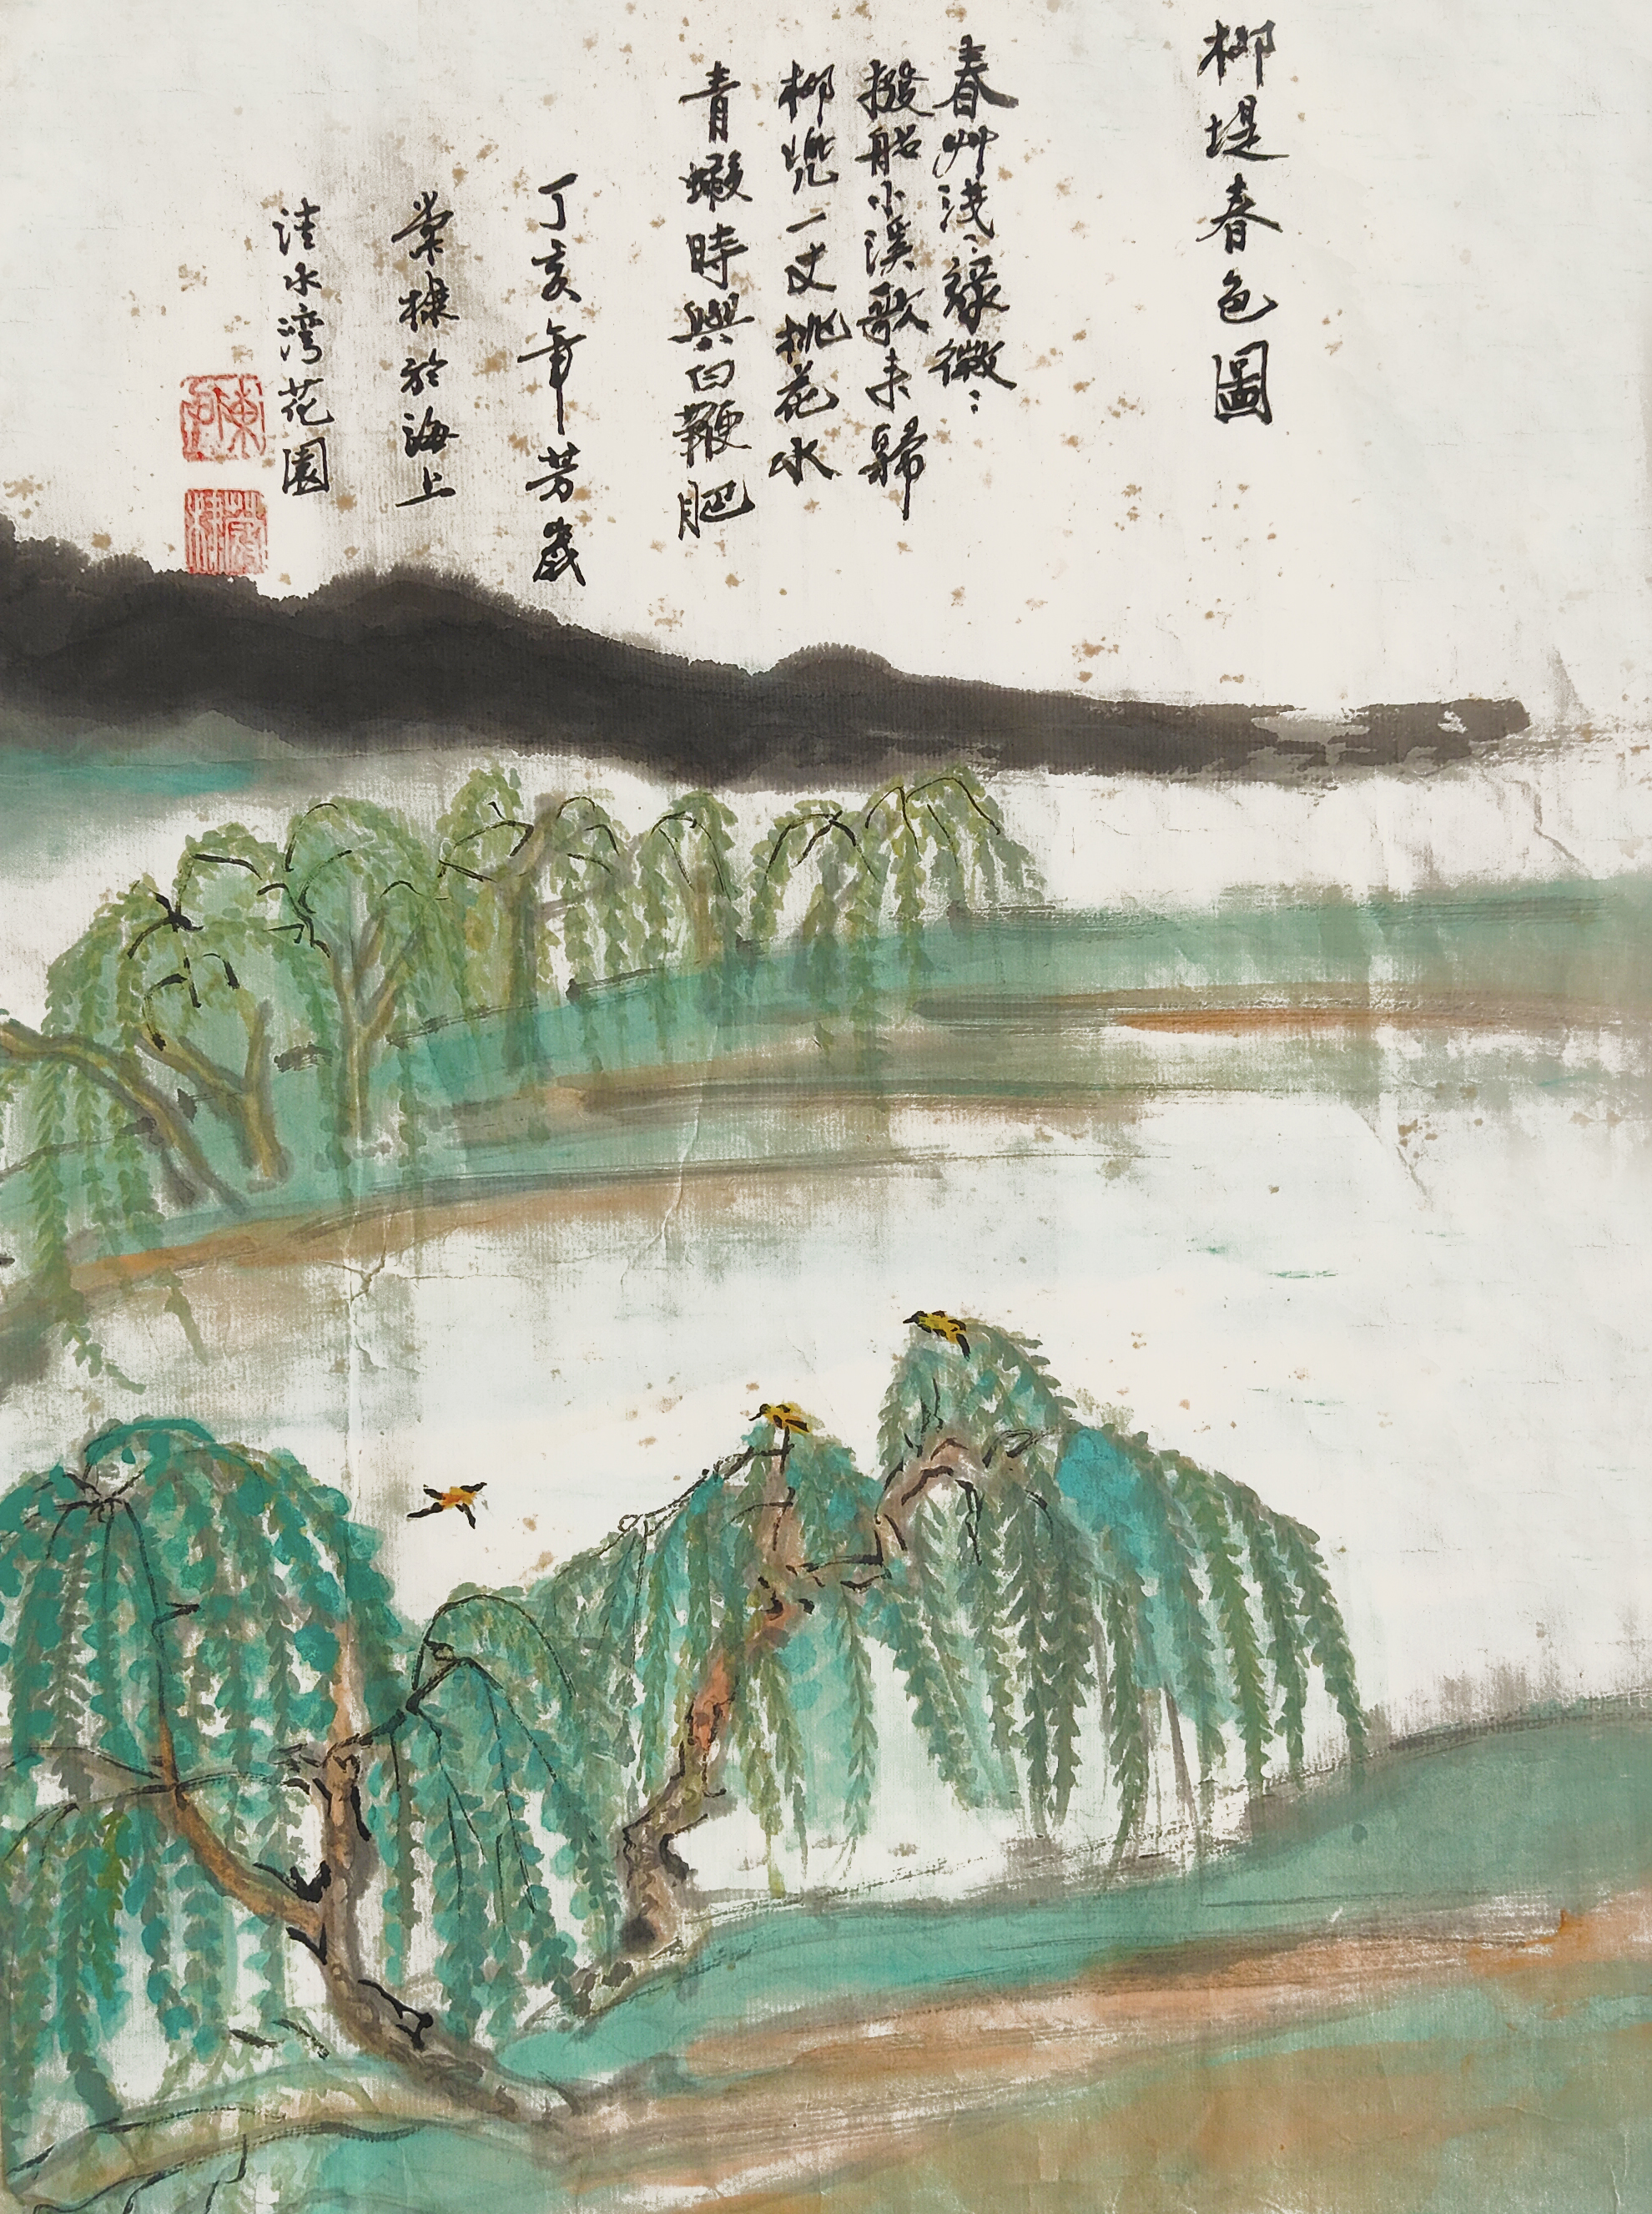 柳堤春色圖
春艸淺淺綠微微
撥船小溪歌未歸
柳兜一丈桃花水
青蝦時與白鞭肥
丁亥年芳歲
棠棣於海上
清水湾花園